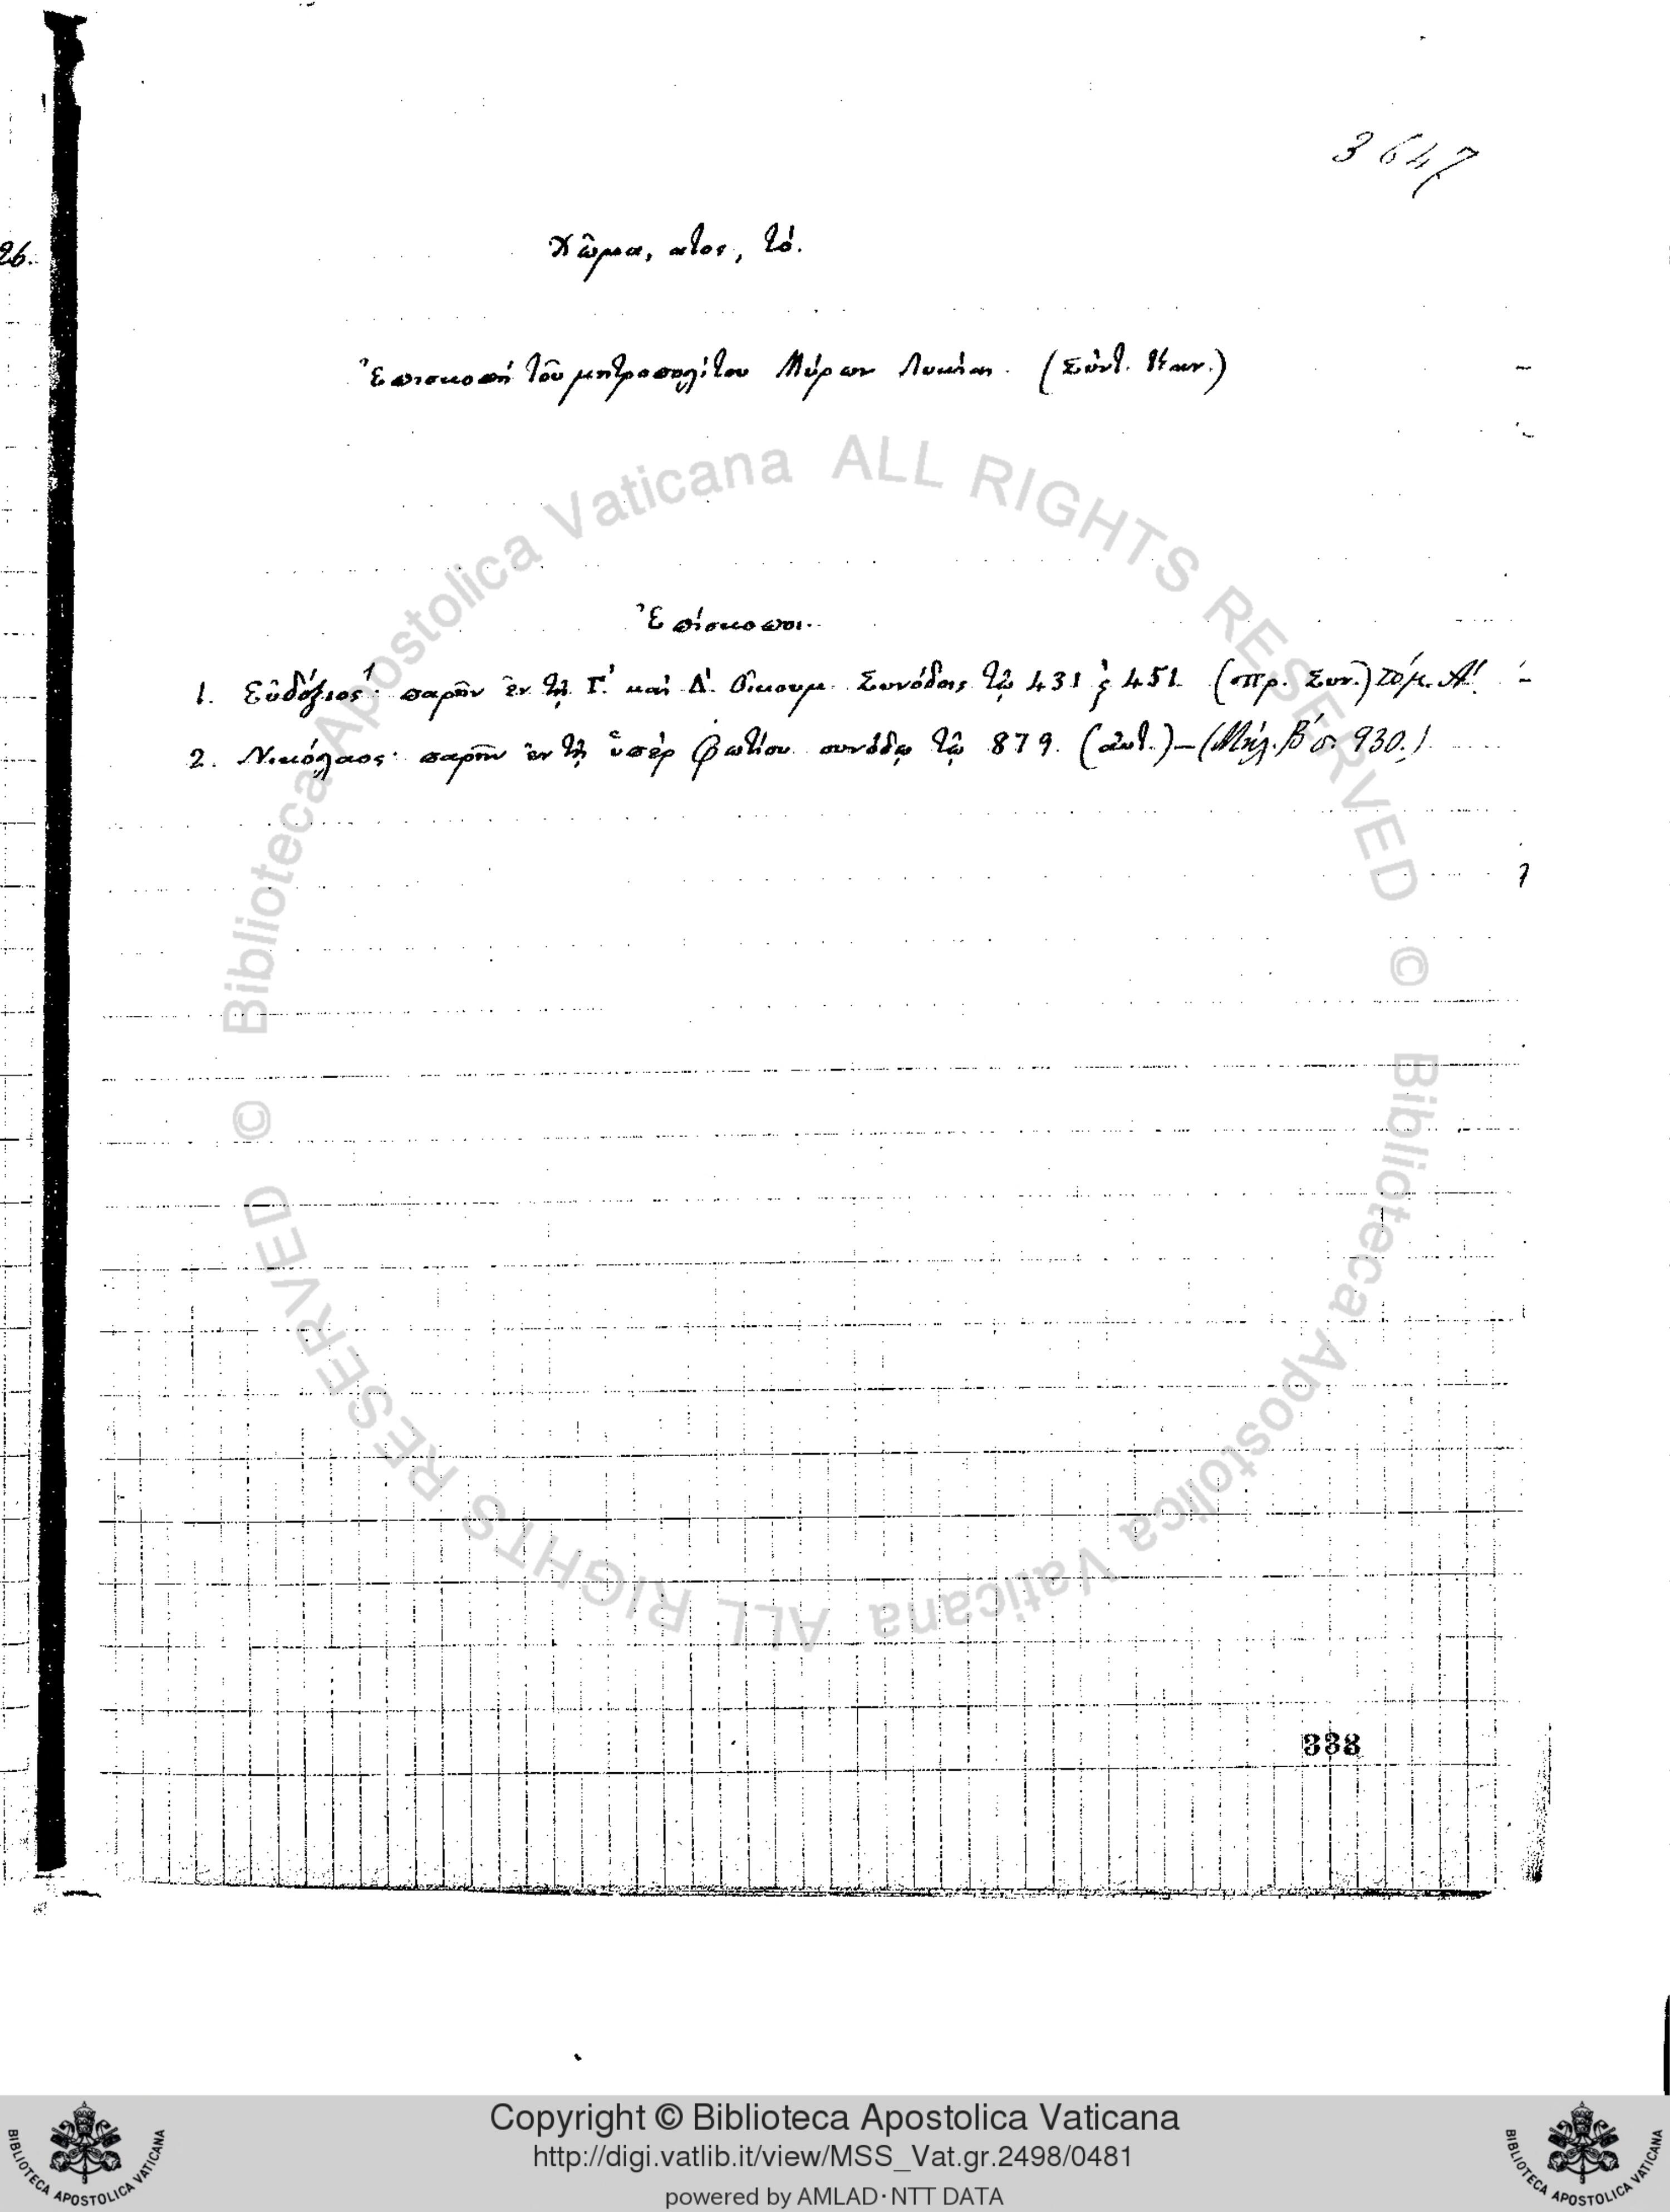 3647
26.
Χῶμα, ατος, τό.
Ἐπισκοπὴ τοῦ μητροπολίτου Μύρων Λυκίας. (Σύντ. Καν.)
Ἐπίσκοποι.
1. Εὐδόξιος¹· παρῆν ἐν τῇ Γ΄. καὶ Δ΄. Οἰκουμ. Συνόδοις τῷ 431 ϗ 451. (πρ. Συν.) τόμ. Α΄.
2. Νικόλαος· παρῆν ἐν τῇ ὑπὲρ Φωτίου συνόδῳ τῷ 879. (αὐτ.) – (Μηλ. Β΄ σ. 930.)
333
© Biblioteca Apostolica Vaticana ALL RIGHTS RESERVED
© Biblioteca Apostolica Vaticana ALL RIGHTS RESERVED
Copyright © Biblioteca Apostolica Vaticana
http://digi.vatlib.it/view/MSS_Vat.gr.2498/0481
powered by AMLAD·NTT DATA
BIBLIOTECA APOSTOLICA VATICANA
BIBLIOTECA APOSTOLICA VATICANA